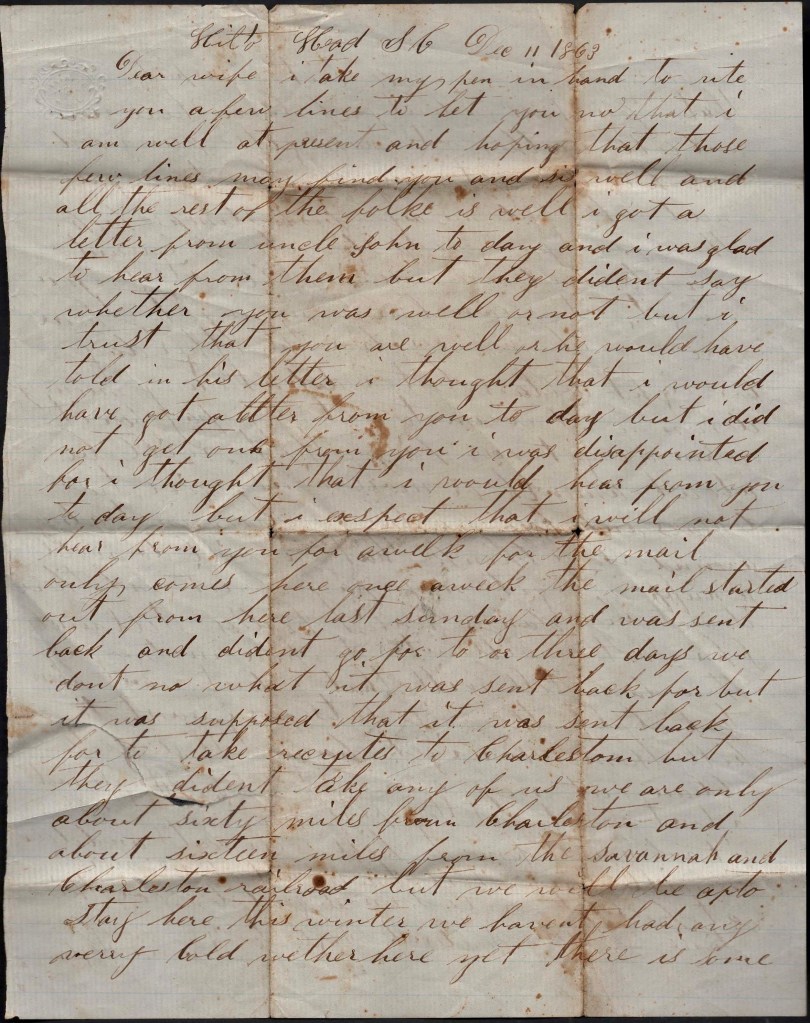 Hilto Head S C Dec 11 1863
Dear wife i take my pen in hand to rite
you a few lines to let you no that i
am well at present and hoping that those
few lines may find you and is well and
all the rest of the folke is well i got a
letter from uncle John to day and i was glad
to hear from them but they dident say
whether you was well or not but i
trust that you are well or he would have
told in his letter i thought that i would
have got a letter from you to day but i did
not get one from you i was disappointed
for i thought that i would hear from you
to day but i exspect that i will not
hear from you for a week for the mail
only comes here once a week the mail started
out from here last sunday and was sent
back and dident go for to or three days we
dont no what it was sent back for but
it was supposed that it was sent back
for to take recruites to Charleston but
they dident take any of us we are only
about sixty miles from Charleston and
about sixteen miles from the Savannah and
Charleston railroad but we will be apto
stay here this winter we havent had any
verry cold wether here yet there is